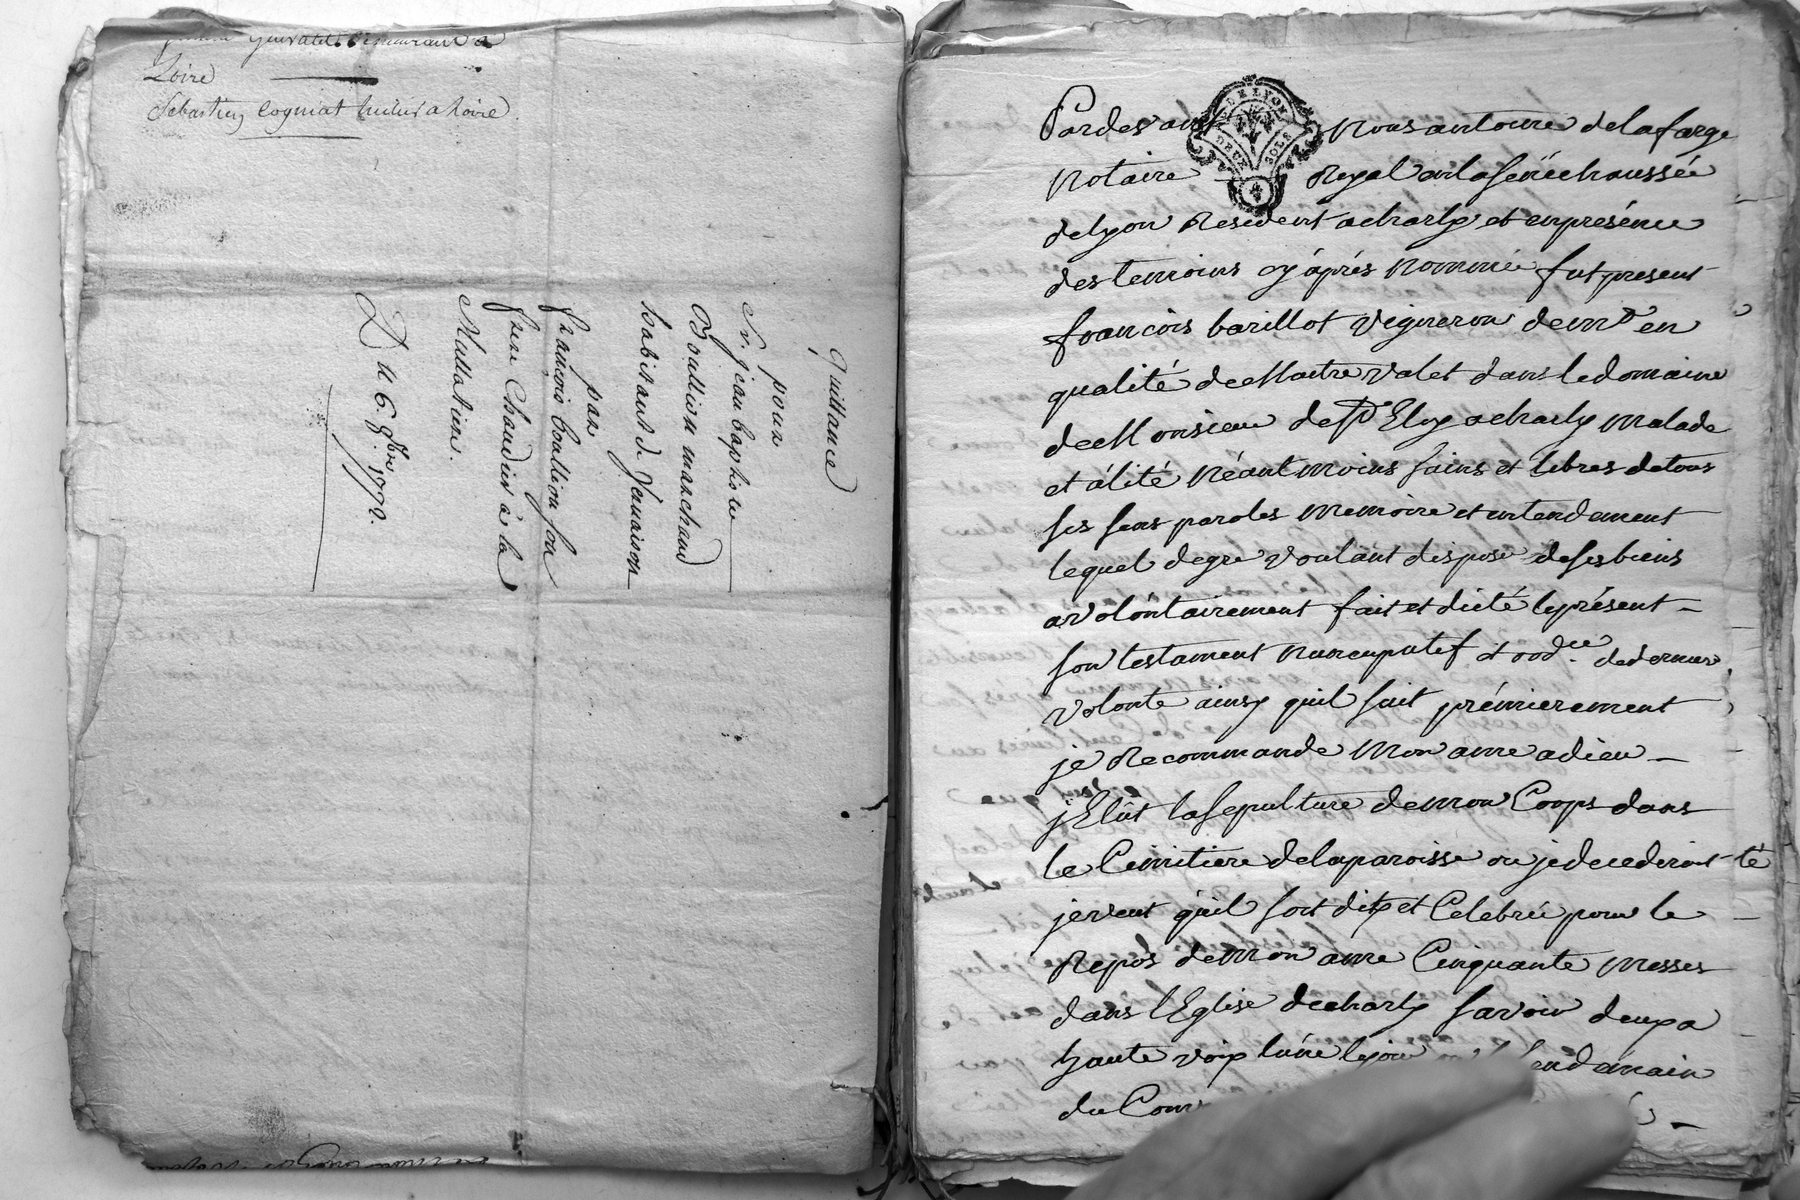 Loire
Sebastien Cogniat huilier a Loire
quittance
pour
Sr. jean baptiste
Boullion marchand
habitant de
par
françois boullion son
frere Chaudier à la
Mullatiere.
Du 6. 8bre 1779.
DE LYON
DEUX SOLS
Pardevant Nous antoine delafarge
Notaire Royal en la sénéchaussée
de lyon Resident a charly et en présence
des temoins cy après Nommé fut present
françois barillot vigneron demt en
qualité de Maitre valet dans le domaine
de Monsieur de St Eloy a charly Malade
et alité Néant moins sains et libres de tous
ses sens paroles Memoire et entendement
lequel de gre voulant dispose de ses biens
a volontairement fait et dicté le présent
son testament Nuncupatif et ordce de dernier
volonte ainsy quil suit prémierement
je Recommande Mon ame a dieu
j'Elût la sepulture de mon Corps dans
le Cimitiere de la paroisse ou je decederait
je veut qu'il soit dit et Celebrée pour le
Repos de Mon ame Cinquante Messes
dans l'Eglise de charly savoir deux a
haute voix l'une le jour endemain
du